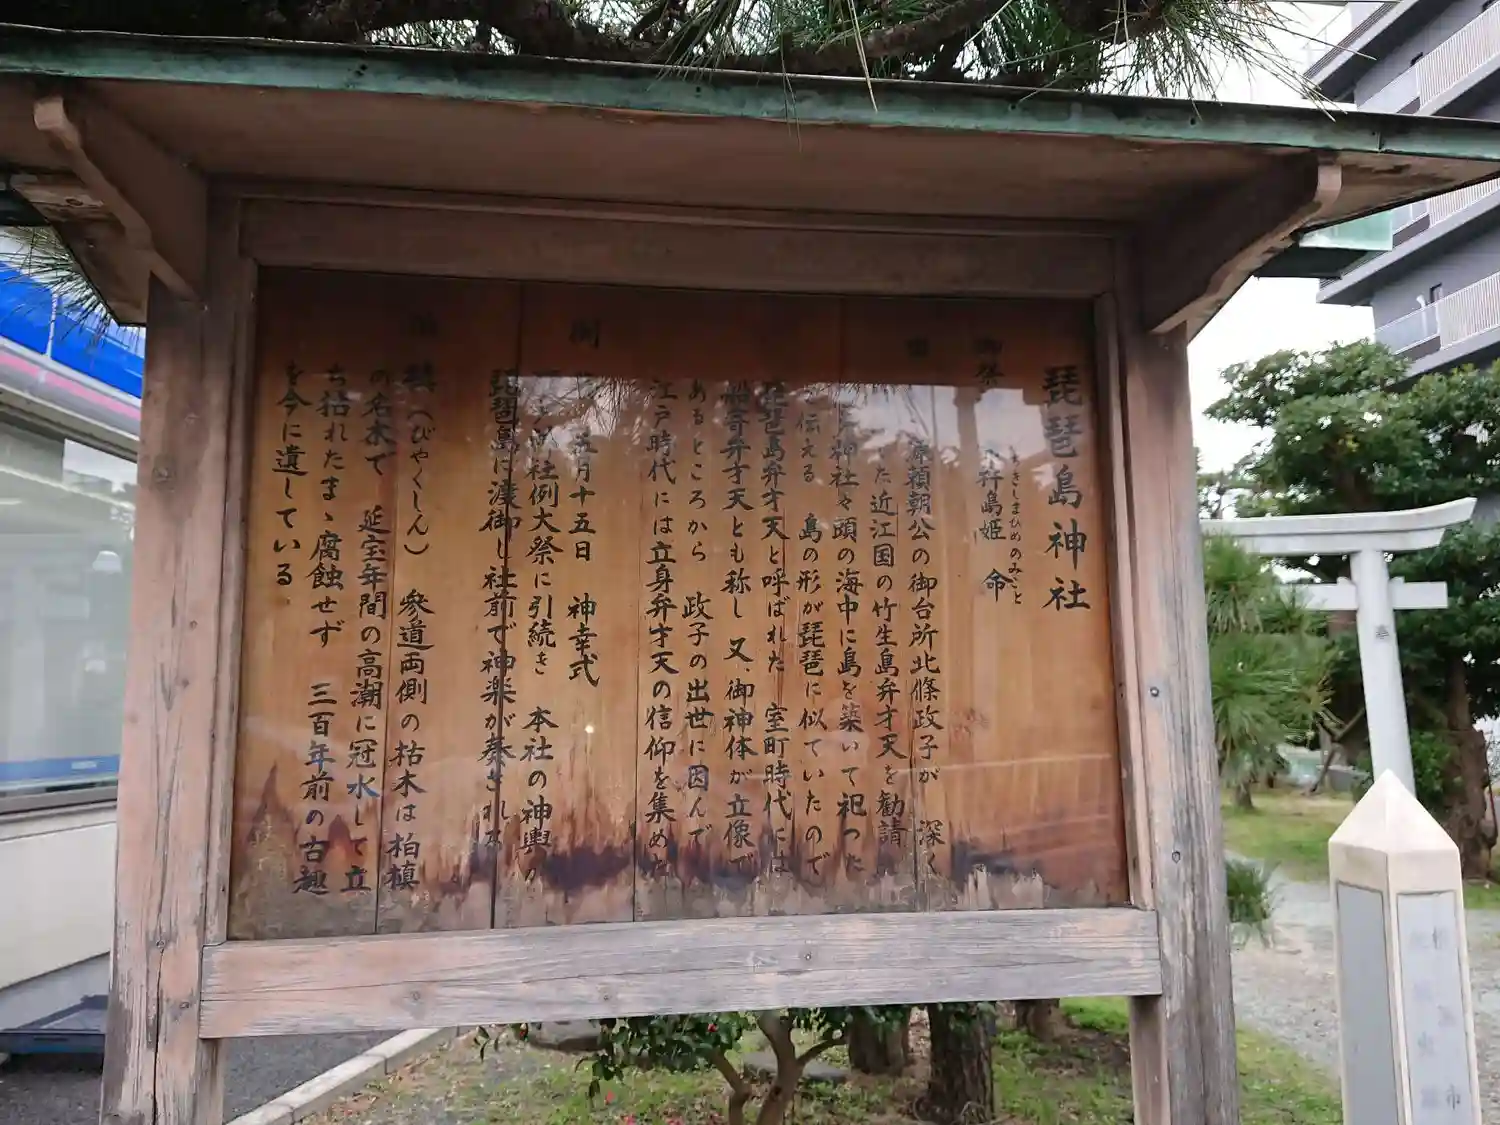 琵琶島神社
御祭
いちきしまひめのみこと
杵島姫 命
源頼朝公の御台所北條政子が 深く
た近江国の竹生島弁才天を勧請
神社々頭の海中に島を築いて祀った
伝える 島の形が琵琶に似ていたので
琵琶島弁才天と呼ばれた 室町時代には
船寄弁才天とも称し 又、御神体が立像で
あるところから 政子の出世に因んで
江戸時代には立身弁才天の信仰を集めた
例
五月十五日 神幸式
社例大祭に引続き 本社の神輿が
琵琶島に渡御し社前で神楽が奏され
槙(へびやくしん) 参道両側の枯木は柏槙
の名木で 延宝年間の高潮に冠水して立
ち枯れたまゝ腐蝕せず 三百年前の古趣
を今に遺している